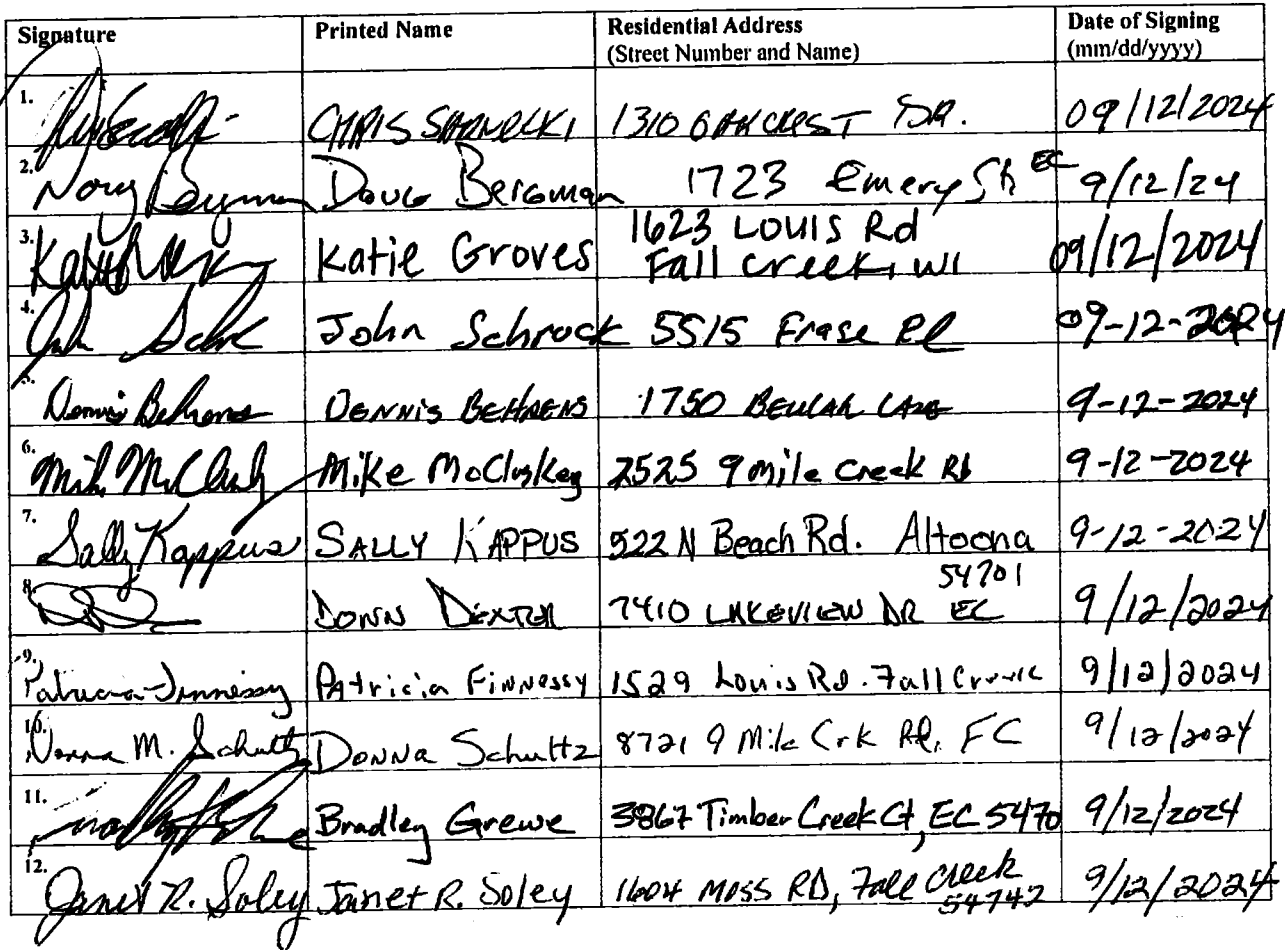 Signature Printed Name Residential Address Date of Signing
(Street Number and Name) (mm/dd/yyyy)
1. CHRIS SARNECKI 1310 OAKCREST DR. 09/12/2024
2. Doug Bergman 1723 Emery St EC 9/12/24
3. Katie Groves 1623 LOUIS Rd 09/12/2024
Fall Creek, WI
4. John Schrock 5515 Frase Rd 09-12-2024
5. Dennis Behrens DENNIS BEHRENS 1750 BEULAH LANE 9-12-2024
6. Mike McCluskey 2525 9 mile Creek Rd 9-12-2024
7. Sally Kappus SALLY KAPPUS 522 N Beach Rd. Altoona 9-12-2024
54701
8. DONN DEXTER 7410 LAKEVIEW DR EC 9/12/2024
9. Patricia Finnessy PAtricia FINNessy 1529 Louis Rd. Fall Creek 9/12/2024
10. Donna M. Schultz Donna Schultz 8721 9 Mile Crk Rd, FC 9/12/2024
11. Bradley Grewe 3867 Timber Creek Ct, EC 5470 9/12/2024
12. Janet R. Soley Janet R. Soley 1604 MOSS RD, Fall Creek 9/12/2024
54742